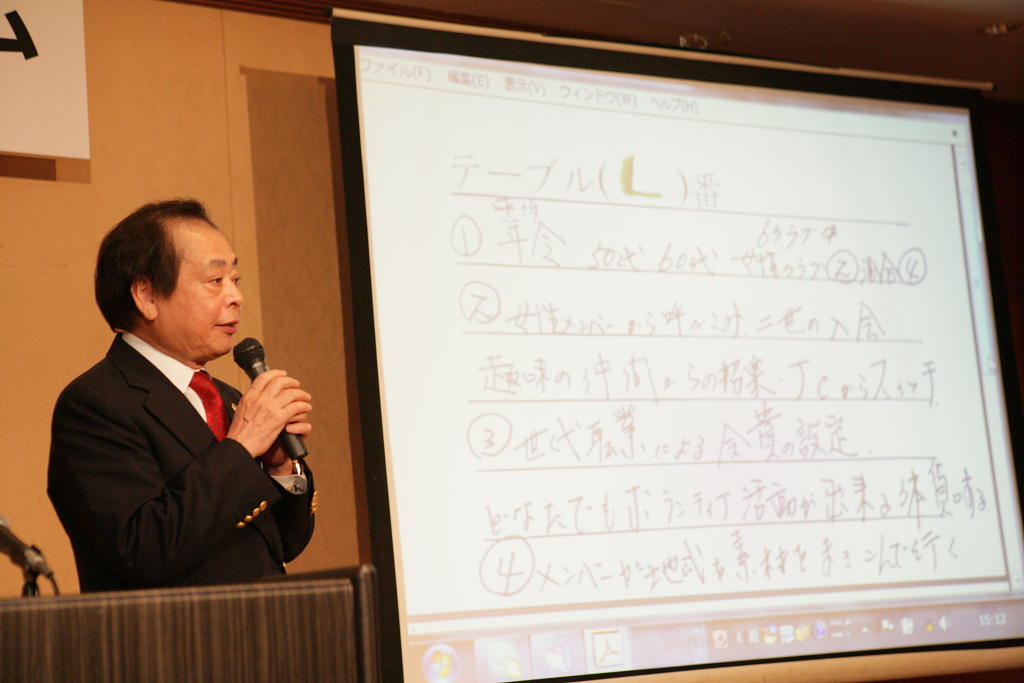 ファイル(F) 編集(E) 表示(V) ウィンドウ(W) ヘルプ(H)
テーブル( L )番
平均 6クラブ中
① 年令 50代 60代 女性クラブ② 混合④
② 女性メンバーから呼びこみ. 二世の入会
趣味の仲間からの招集・JCからスイッチ
③ 世代職業による会費の設定.
どなたでもボランティア活動が出来る体質
④ メンバーが地域を素材をまきこんで行く
15:12